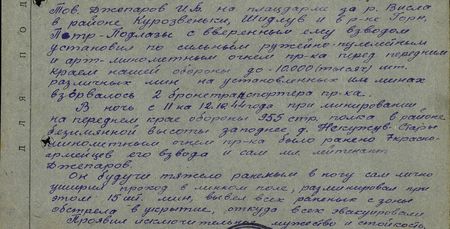 Тов. Джепаров И.А. на плацдарме за р. Висла
в районе Курозвеньки, Шидлув и в р-не Горн,
Петр-Подлазы с вверенным ему взводом
установил по сильным ружейно-пулеметным
и арт-минометным огнем пр-ка перед передним
краем нашей обороны до - 10.000 /тысяч/ шт.
различных мин на установленных им минах
взорвалось 2 бронетранспортера пр-ка.
В ночь с 11 на 12.10.44 года при минировании
на переднем крае обороны 955 стр. полка в районе
безимянной высоты западнее д. Некутсув-Стары
минометным огнем пр-ка было ранено 7 красно-
армейцев его взвода и сам мл. лейтенант
Джепаров.
Он будучи тяжело раненым в ногу сам лично
уширил проход в минном поле, разминировал при
этом 15 шт. мин, вывел всех раненых с зоны
обстрела в укрытие, откуда всех эвакуировали
Проявил исключительное мужество и стойкость,